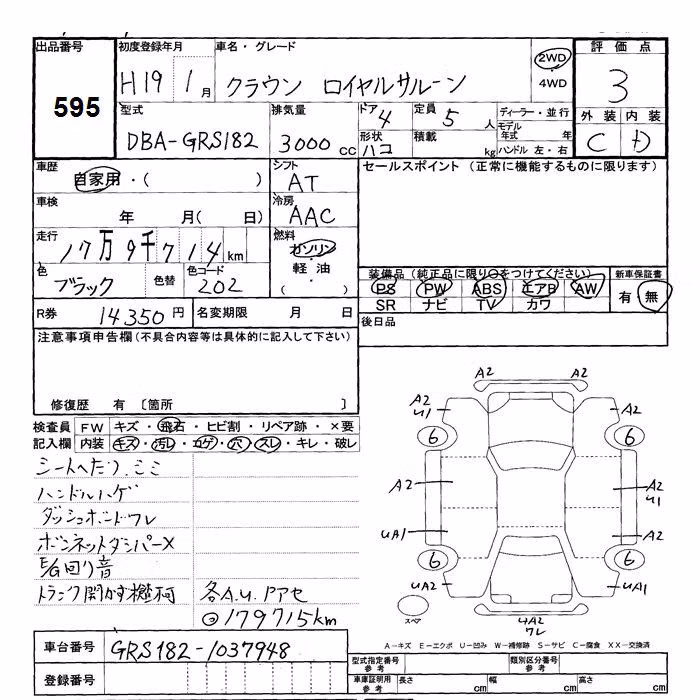 出品番号 初度登録年月 車名・グレード 2WD 評価点
595 H19 1月 クラウン ロイヤルサルーン 4WD 3
型式 排気量 ドア 4 定員 5人 ディーラー・並行 外装 内装
DBA-GRS182 3000cc 形状 ハコ 積載 kg モデル年式 年 C D
ハンドル 左・右
車歴 シフト セールスポイント (正常に機能するものに限ります)
自家用・( ) AT
車検 冷房
年 月( 日) AAC
走行 燃料
17万9千714km ガソリン
色 色替 色コード 軽油 装備品(純正品に限り○をつけてください) 新車保証書
ブラック 202 ( ) PS PW ABS エアB AW 有 無
SR ナビ TV カワ
R券 14350円 名変期限 月 日 後日品
注意事項申告欄(不具合内容等は具体的に記入して下さい)
修復歴 有 〔箇所 〕
検査員 FW キズ・飛石・ヒビ割・リペア跡・×要
記入欄 内装 キズ・汚レ・コゲ・穴・スレ・キレ・破レ
シートへたり、シミ
ハンドルハゲ
ダッシュボードワレ
ボンネットダンパーX
E/G回り音
トランク開かず 各A.U.アセ
◎179715km
A2 A2
A2 U1 A2
6 6
A2 A2 U1
UA1 A2
6 6
UA2 UA1
スペア UA2 ワレ
A-キズ E-エクボ U-凹み W-補修跡 S-サビ C-腐食 XX-交換済
車台番号 GRS182-1037948
登録番号
型式指定番号 参考 類別区分番号 参考
車庫証明用 参考 長さ cm 幅 cm 高さ cm